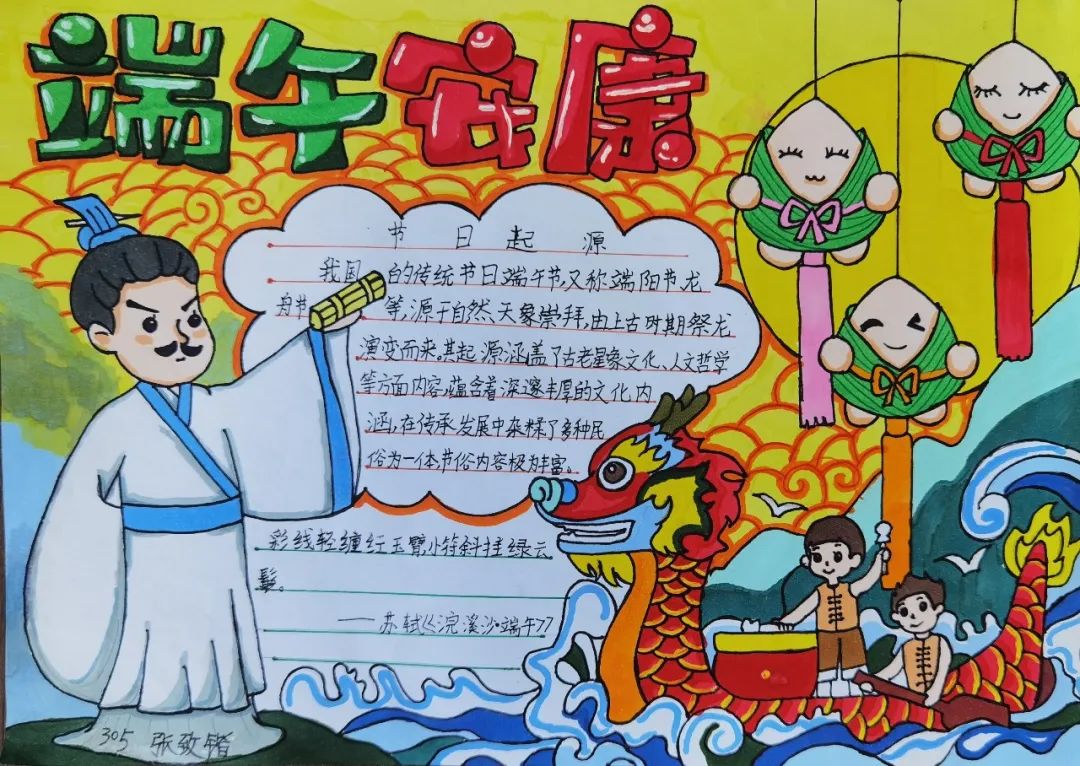 端午安康
节日起源
我国的传统节日端午节,又称端阳节、龙
舟节等,源于自然、天象崇拜,由上古时期祭龙
演变而来,其起源涵盖了古老星象文化、人文哲学
等方面内容,蕴含着深邃丰厚的文化内
涵,在传承发展中杂糅了多种民
俗为一体,节俗内容极为丰富。
彩线轻缠红玉臂,小符斜挂绿云
鬟。
——苏轼《浣溪沙·端午》
305 张致